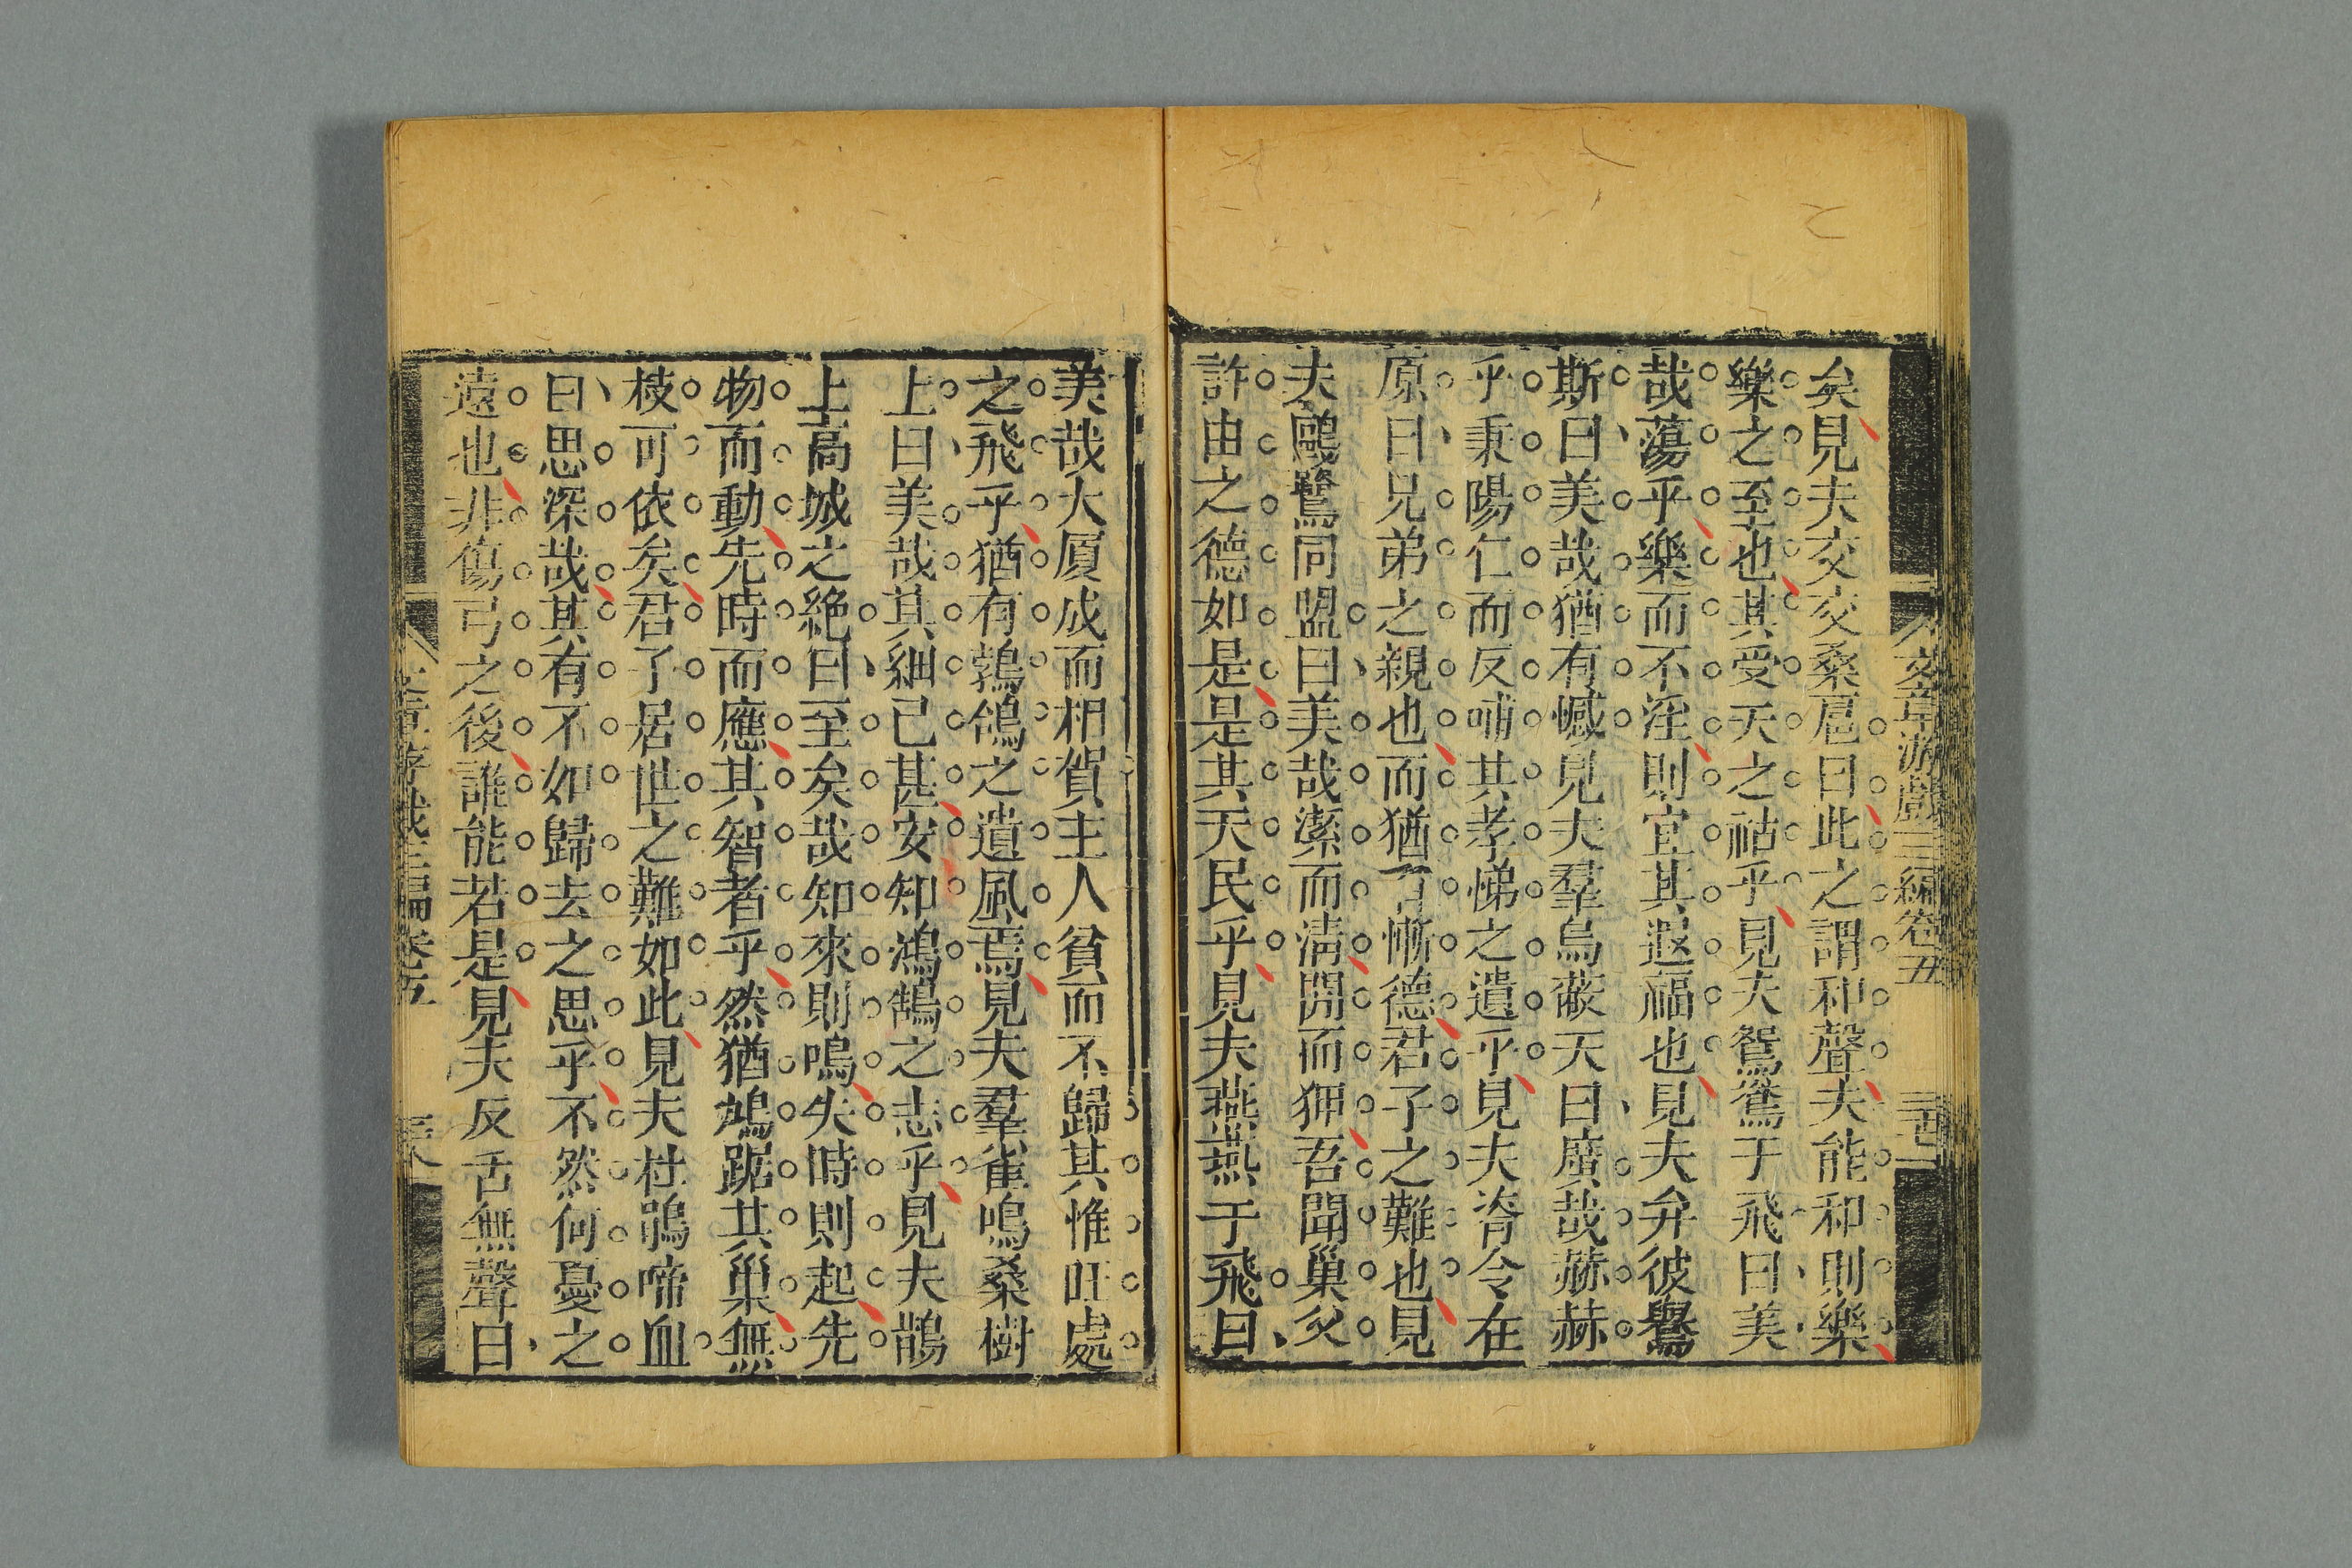 文章游戲三編卷五
矣見夫交交桑扈曰此之謂和聲夫能和則樂
樂之至也其受天之祜乎見夫鴛鴦于飛曰美
哉蕩乎樂而不淫則宜其遐福也見夫弁彼鸒
斯曰美哉猶有憾見夫羣烏蔽天曰廣哉赫赫
乎秉陽仁而反哺其孝悌之遺乎見夫脊令在
原曰兄弟之親也而猶有慚德君子之難也見
夫鷗鷺同盟曰美哉潔而淸閒而狎吾聞巢父
許由之德如是是其天民乎見夫燕燕于飛曰
美哉大厦成而相賀主人貧而不歸其惟旺處
之飛乎猶有鶉鴿之遺風焉見夫羣雀鳴桑樹
上曰美哉其細已甚安知鴻鵠之志乎見夫鵲
上高城之絶曰至矣哉知來則鳴失時則起先
物而動先時而應其智者乎然猶鳩踞其巢無
枝可依矣君子居世之難如此見夫杜鵑啼血
曰思深哉其有不如歸去之思乎不然何憂之
遠也非傷弓之後誰能若是見夫反舌無聲曰
文章游戲三編卷五